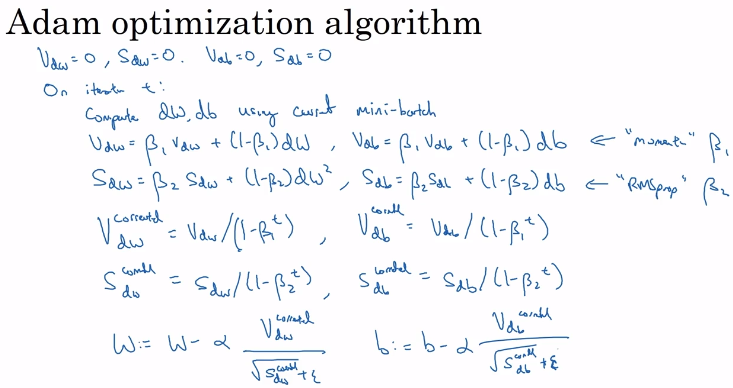 Adam optimization algorithm
V_dw = 0, S_dw = 0. V_db = 0, S_db = 0
On iteration t:
Compute dW, db using current mini-batch
V_dw = β₁ V_dw + (1-β₁) dW, V_db = β₁ V_db + (1-β₁) db ← "momentum" β₁
S_dw = β₂ S_dw + (1-β₂) dW², S_db = β₂ S_db + (1-β₂) db ← "RMSprop" β₂
V_dw^corrected = V_dw/(1-β₁^t), V_db^corrected = V_db/(1-β₁^t)
S_dw^corrected = S_dw/(1-β₂^t), S_db^corrected = S_db/(1-β₂^t)
W := W - α V_dw^corrected / (√S_dw^corrected + ε) b := b - α V_db^corrected / (√S_db^corrected + ε)